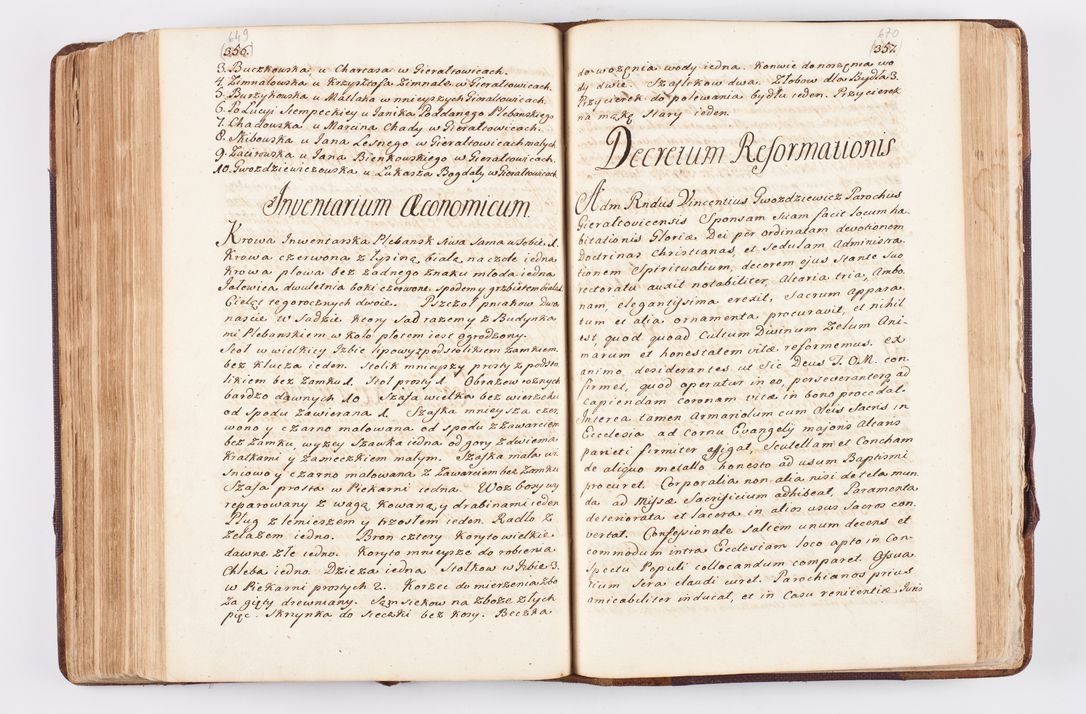 649
356.
3. Buczkowska, u Chartasa w Gierałtowicach.
4. Zimnalowska u Krzysztofa Zimnale w Gierałtowicach.
5. Burzykowska u Matlaka w mnieyszych Gierałtowicach.
6. Po Łucyi Siempeckiey u Janika Poddanego Plebanskiego
7. Chadowska u Marcina Chady w Gierałtowicach.
8. Skibowska u Jana Lesnego w Gierałtowicach małych
9. Zacirowska u Jana Bienkowskiego w Gierałtowicach.
10. Gwozdziewiczowska u Łukasza Bogdały w Gierałtowicach
Inventarium Œconomicum.
Krowa Inwentarska Plebansk Siwa Sama w Sobie .1.
Krowa czerwona z łysiną białą na czole iedna
Krowa płowa bez żadnego znaku młoda iedna
Jałowica dwuletnia boki czerwone, spodem y grzbietem biała 1.
Cieląt tegorocznych dwoie. Pszczoł pniakow dwa
nascie w Sadzie ktory Sad razem y z Budynka
mi Plebanskiem w koło płotem iest ogrodzony.
Stoł w wielkiey Izbie lipowy z podstolikiem Zamkiem
bez klucza ieden. Stolik mnieyszy prosty z podsto
likiem bez Zamku 1. Stoł prosty 1. Obrazow roznych
bardzo dawnych 10. Szafa wielka bez wierzchu
od spodu Zawierana 1. Szafka mnieysza czer
wono y czarno malowana od spodu z Zawarciem
bez Zamku, wyzey Szawka iedna od gory z dwiema
Kratkami y Zasneczkiem małym. Szafka mała wi
sniowo y czarno malowana z Zawarciem bez Zamku
Szafa prosta w Piekarni iedna. Woz bosy wy
reparowany z wagą Kowaną y drabinami ieden
Pług z lemieszem y trzosłem ieden. Radło z
Zelazem iedno. Bron cztery Koryto wielkie
dawne złe iedno. Koryto mnieysze do robienia
Chleba iedno. Dzieza iedna Stołkow w Izbie 3.
w Piekarni prostych 2. Korzec do mierzenia zbo
za gięty drewniany. Sąmsiekow na zboze złych
pięc. Skrzynka do sieczki bez kosy. Beczka
670
357.
do wozęnia wody iedna. Konwie do noszęnia wo
dy dwie. Szaflikow dwa. Złobow dla Bydła 3.
Przycierek do polewania bydłu ieden. Przycierek
na mąkę Stary ieden.
Decretum Reformationis
Adm Rndus Vincentius Gwozdziewicz Parochus
Gieraltovicensis Sponsam Suam facit locum ha-
bitationis Gloriæ Dei per ordinatam devotionem
Doctrinas Christianas, et Sedulam Administra-
tionem Spiritualium, decorem ejus Stante Suo
rectoratu auxit notabiliter, Altaria tria, Ambo-
nam, elegantissima erexit, Sacrum appara-
tum et alia ornamenta procuravit, et nihil
est quod quoad Cultum Divinum Zelum Ani-
marum et honestatem vitæ reformemus. ex
animo desiderantes ut Sic Deus T. O. M. con-
firmet, quod operatur in eo, perseveranterq ad
Capiendam coronam vitæ in bono procedat.
Interea tamen Armariolum cum Oleis Sacris in
Ecclesia ad Cornu Evangely majoris Altaris
parieti firmiter affigat, Scutellam et Concham
de aliquo metallo honesto ad usum Baptismi
procuret. Corporalia non alia nisi de tela mun
da ad Missæ Sacrificium adhibeat, Paramenta
deteriorata et lacera in alios usus Sacros con
vertat. Confessionale Saltem unum decens et
commodum intra Ecclesiam loco apto in Con-
spectu Populi collocandum comparet. Ossua-
rium Sera claudi curet. Parochianos prius
amicabiliter inducat, et in Casu renitentiæ Juris